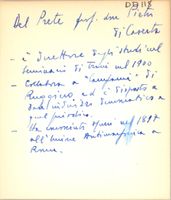 DB 118
Del Prete prof. don Pietro
di Caserta
- è direttore degli studi nel
seminario di Troia nel 1900
- Collabora a "Campania" di
Ruggiero, ed è disposto a
democratico a
quel periodico.
- Ha nel 1897
all'Unione Antimassonica a
Roma.